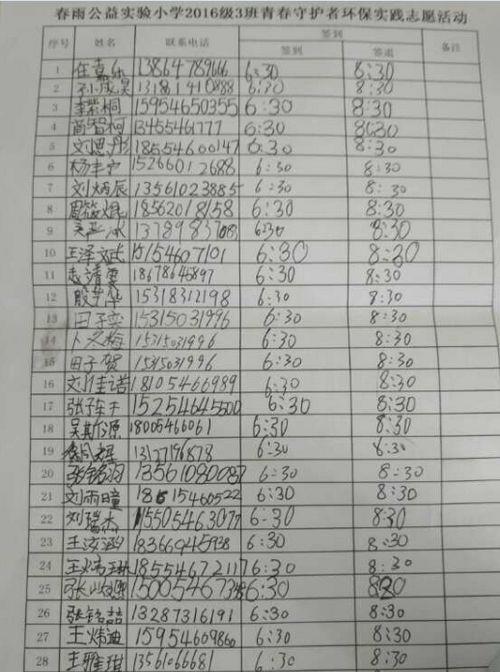 春雨公益实验小学2016级3班青春守护者环保实践志愿活动
序号 姓名 联系电话 签到 备注
签到 签退
1 任嘉乐 6:30 8:30
2 孙成昊 13181410888 6:30 8:30
3 李紫桐 15954650355 6:30 8:30
4 尚智柯 13455461777 6:30 8:30
5 18554600147 6:30 8:30
6 杨丰宁 15266012688 6:30 8:30
7 刘炳辰 13561023885 6:30 8:30
8 18562018158 6:30 8:30
9 6:30 8:30
10 王泽文 15154607101 6:30 8:30
11 18678645897 6:30 8:30
12 15318312198 6:30 8:30
13 田子奕 15315031996 6:30 8:30
14 卜文梅 15315031996 6:30 8:30
15 田子贺 15315031996 6:30 8:30
16 刘佳诺 18105466989 6:30 8:30
17 张子轩 15254645500 6:30 8:30
18 吴 源 18005466061 6:30 8:30
19 13127196878 6:30 8:30
20 张铭润 13561080087 6:30 8:30
21 刘雨曈 18615460522 6:30 8:30
22 刘瑞杰 15505463077 6:30 8:30
23 王汝涵 18366945938 6:30 8:30
24 王炜琳 18554672117 6:30 8:30
25 张 6:30 8:30
26 张铭喆 13287316191 6:30 8:30
27 王炜迪 15954609860 6:30 8:30
28 王雅琪 13561066681 6:30 8:30